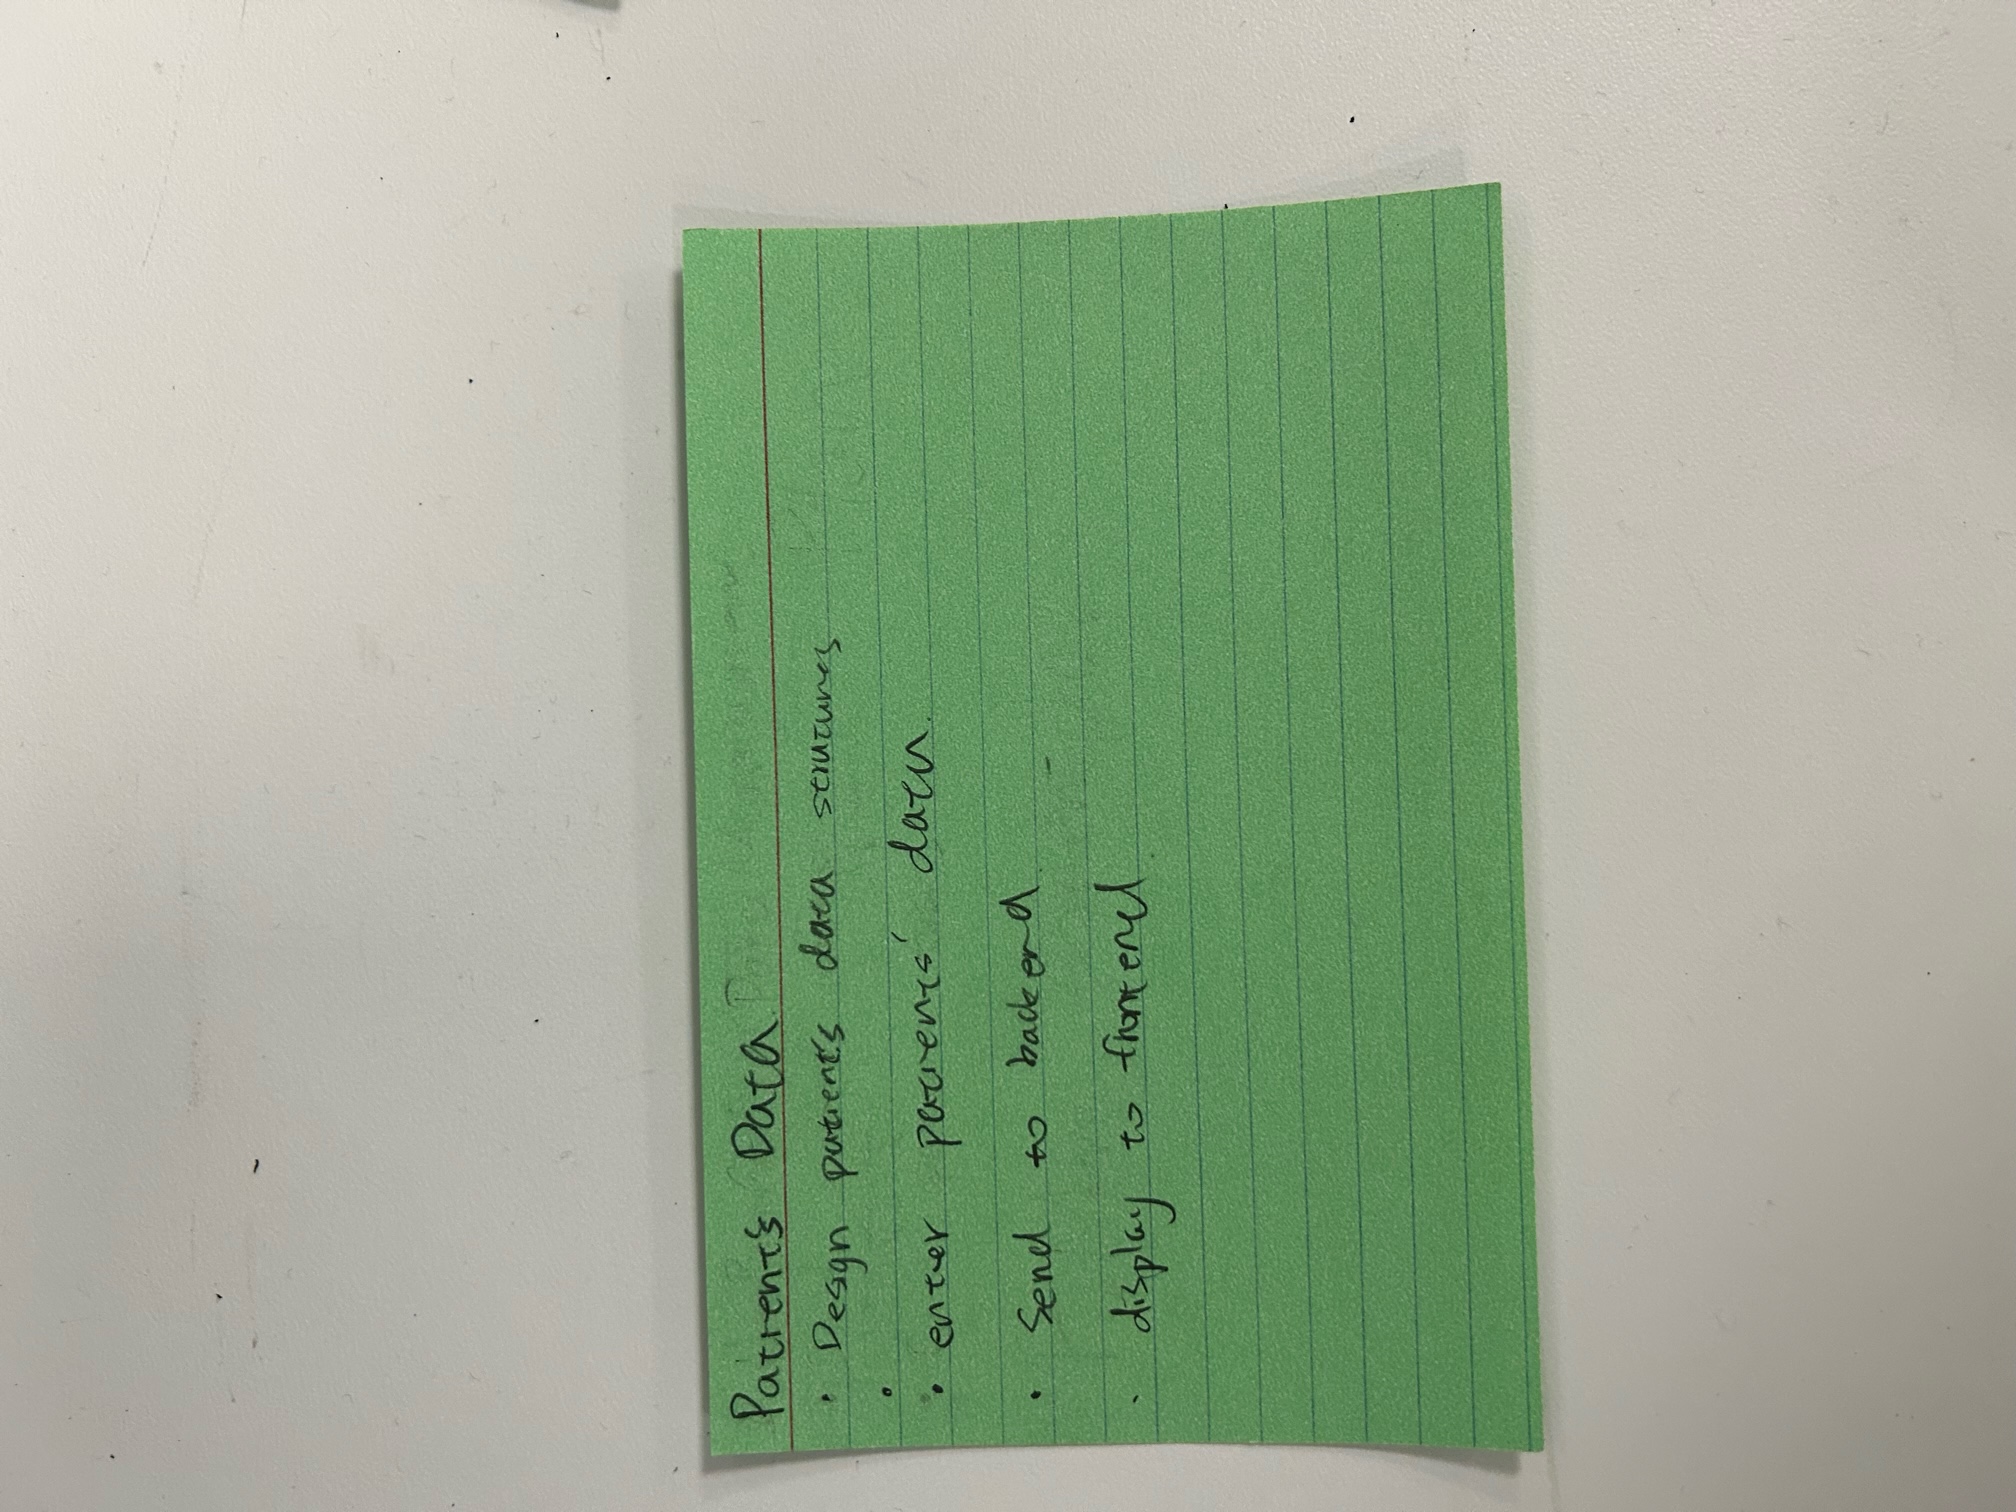 Patient's Data
• Design patient's data strutures
•
• enter patients' data.
• Send to backend.
• display to frontend